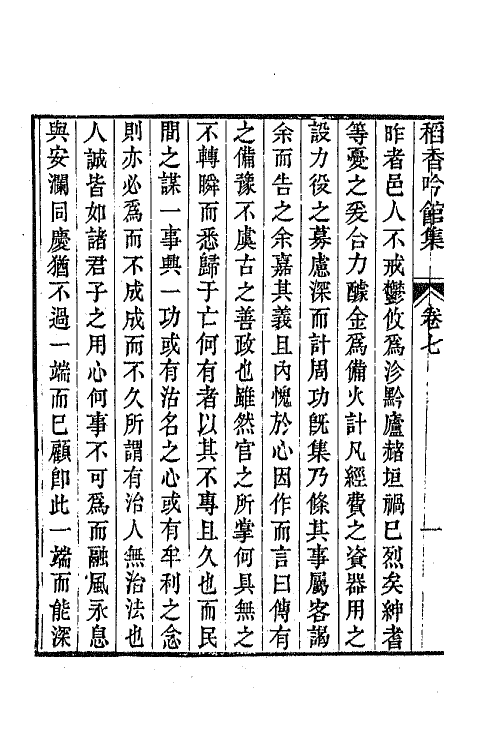 稻香吟館集 卷七 一
昨者邑人不戒鬱攸爲沴黔廬赭垣禍巳烈矣紳耆
等憂之爰合力醵金爲備火計凡經費之資器用之
設力役之募慮深而計周功旣集乃條其事屬客謁
余而告之余嘉其義且內愧於心因作而言曰傳有
之備豫不虞古之善政也雖然官之所掌何具無之
不轉瞬而悉歸于亡何有者以其不專且久也而民
間之謀一事興一功或有治名之心或有牟利之念
則亦必爲而不成成而不久所謂有治人無治法也
人誠皆如諸君子之用心何事不可爲而融風永息
與安瀾同慶猶不過一端而巳顧卽此一端而能深